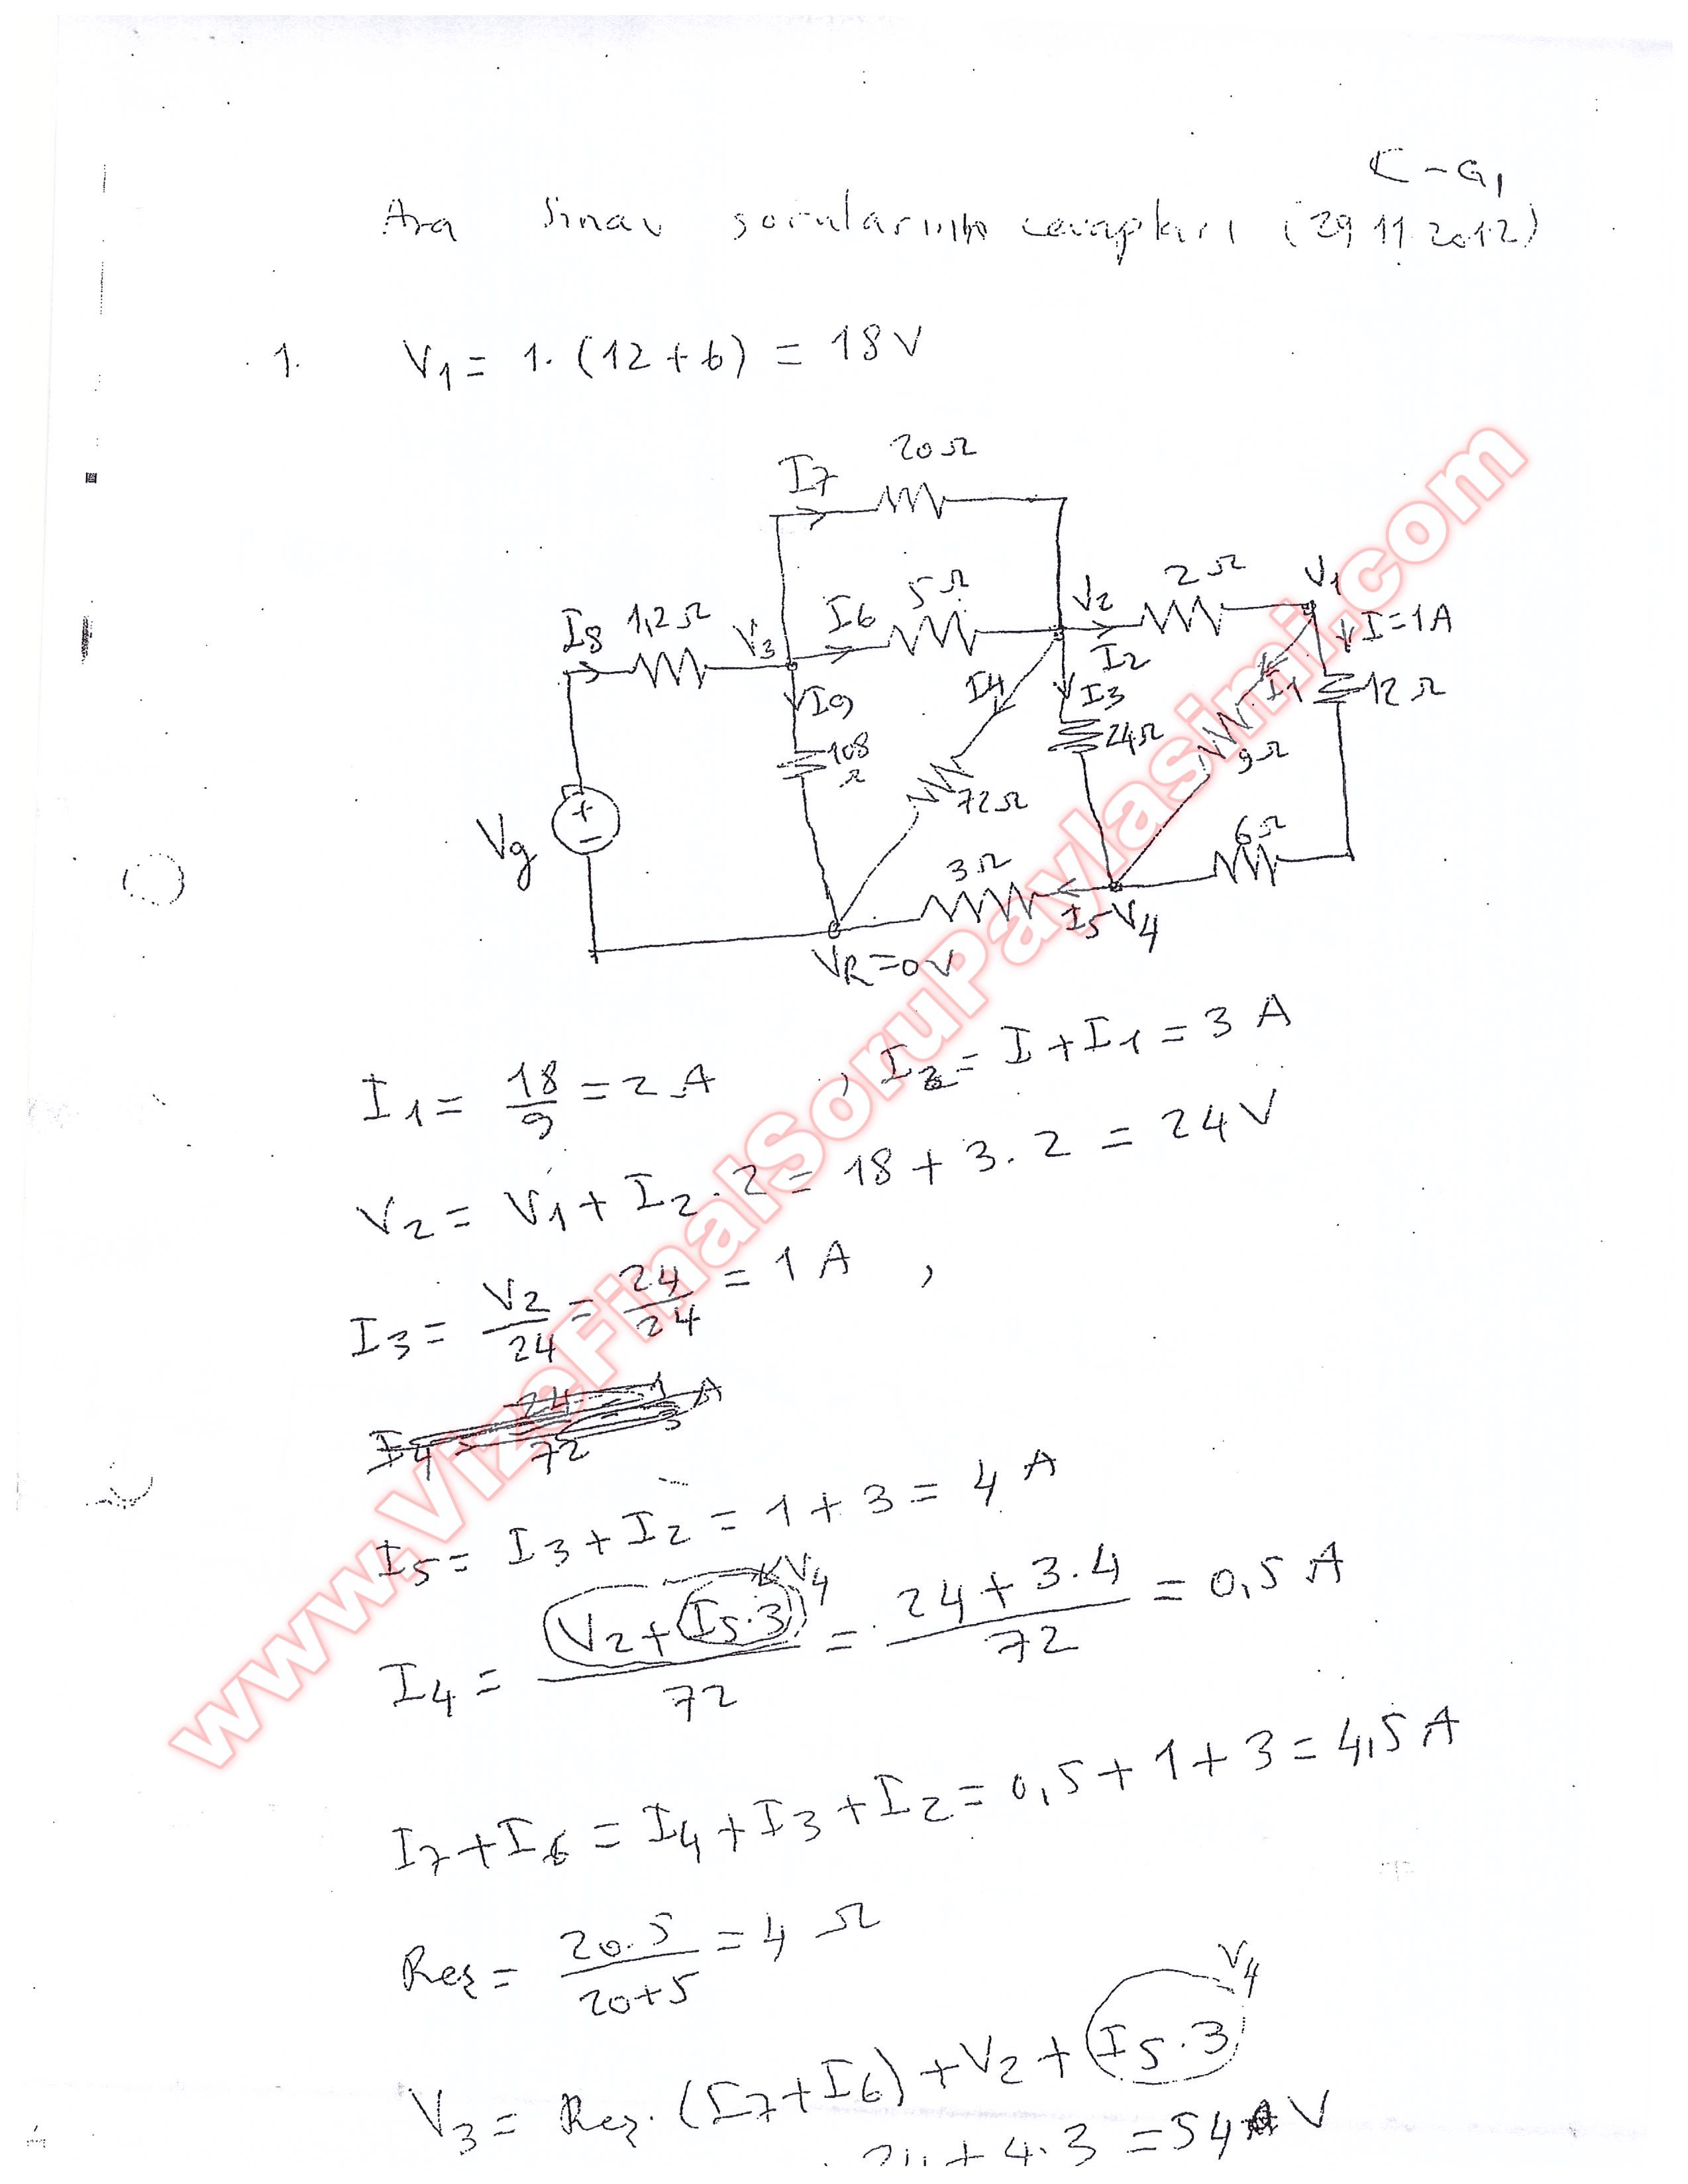 C-G1
Ara Sınav sorularının cevapları (29.11.2012)
1. V1 = 1.(12+6) = 18V
20Ω
I7
I8 1,2Ω V3 I6 5Ω V2 2Ω V1
I2 I=1A
I9 I4 I3 I1 12Ω
108 Ω 72Ω 24Ω 9Ω
Vg + −
3Ω 6Ω
I5 V4
VR=0V
I1 = 18/9 = 2A , I2 = I+I1 = 3 A
V2 = V1 + I2.2 = 18 + 3.2 = 24V
I3 = V2/24 = 24/24 = 1A ,
I5 = I3 + I2 = 1+3 = 4 A
I4 = (V2 + I5.3)/72 = (24+3.4)/72 = 0,5 A
V4
I7+I6 = I4+I3+I2 = 0,5+1+3 = 4,5A
Reş = 20.5/(20+5) = 4 Ω
V4
V3 = Reş.(I7+I6) + V2 + I5.3
24 + 4.3 = 54 V
www.VizeFinalSoruPaylasimi.com